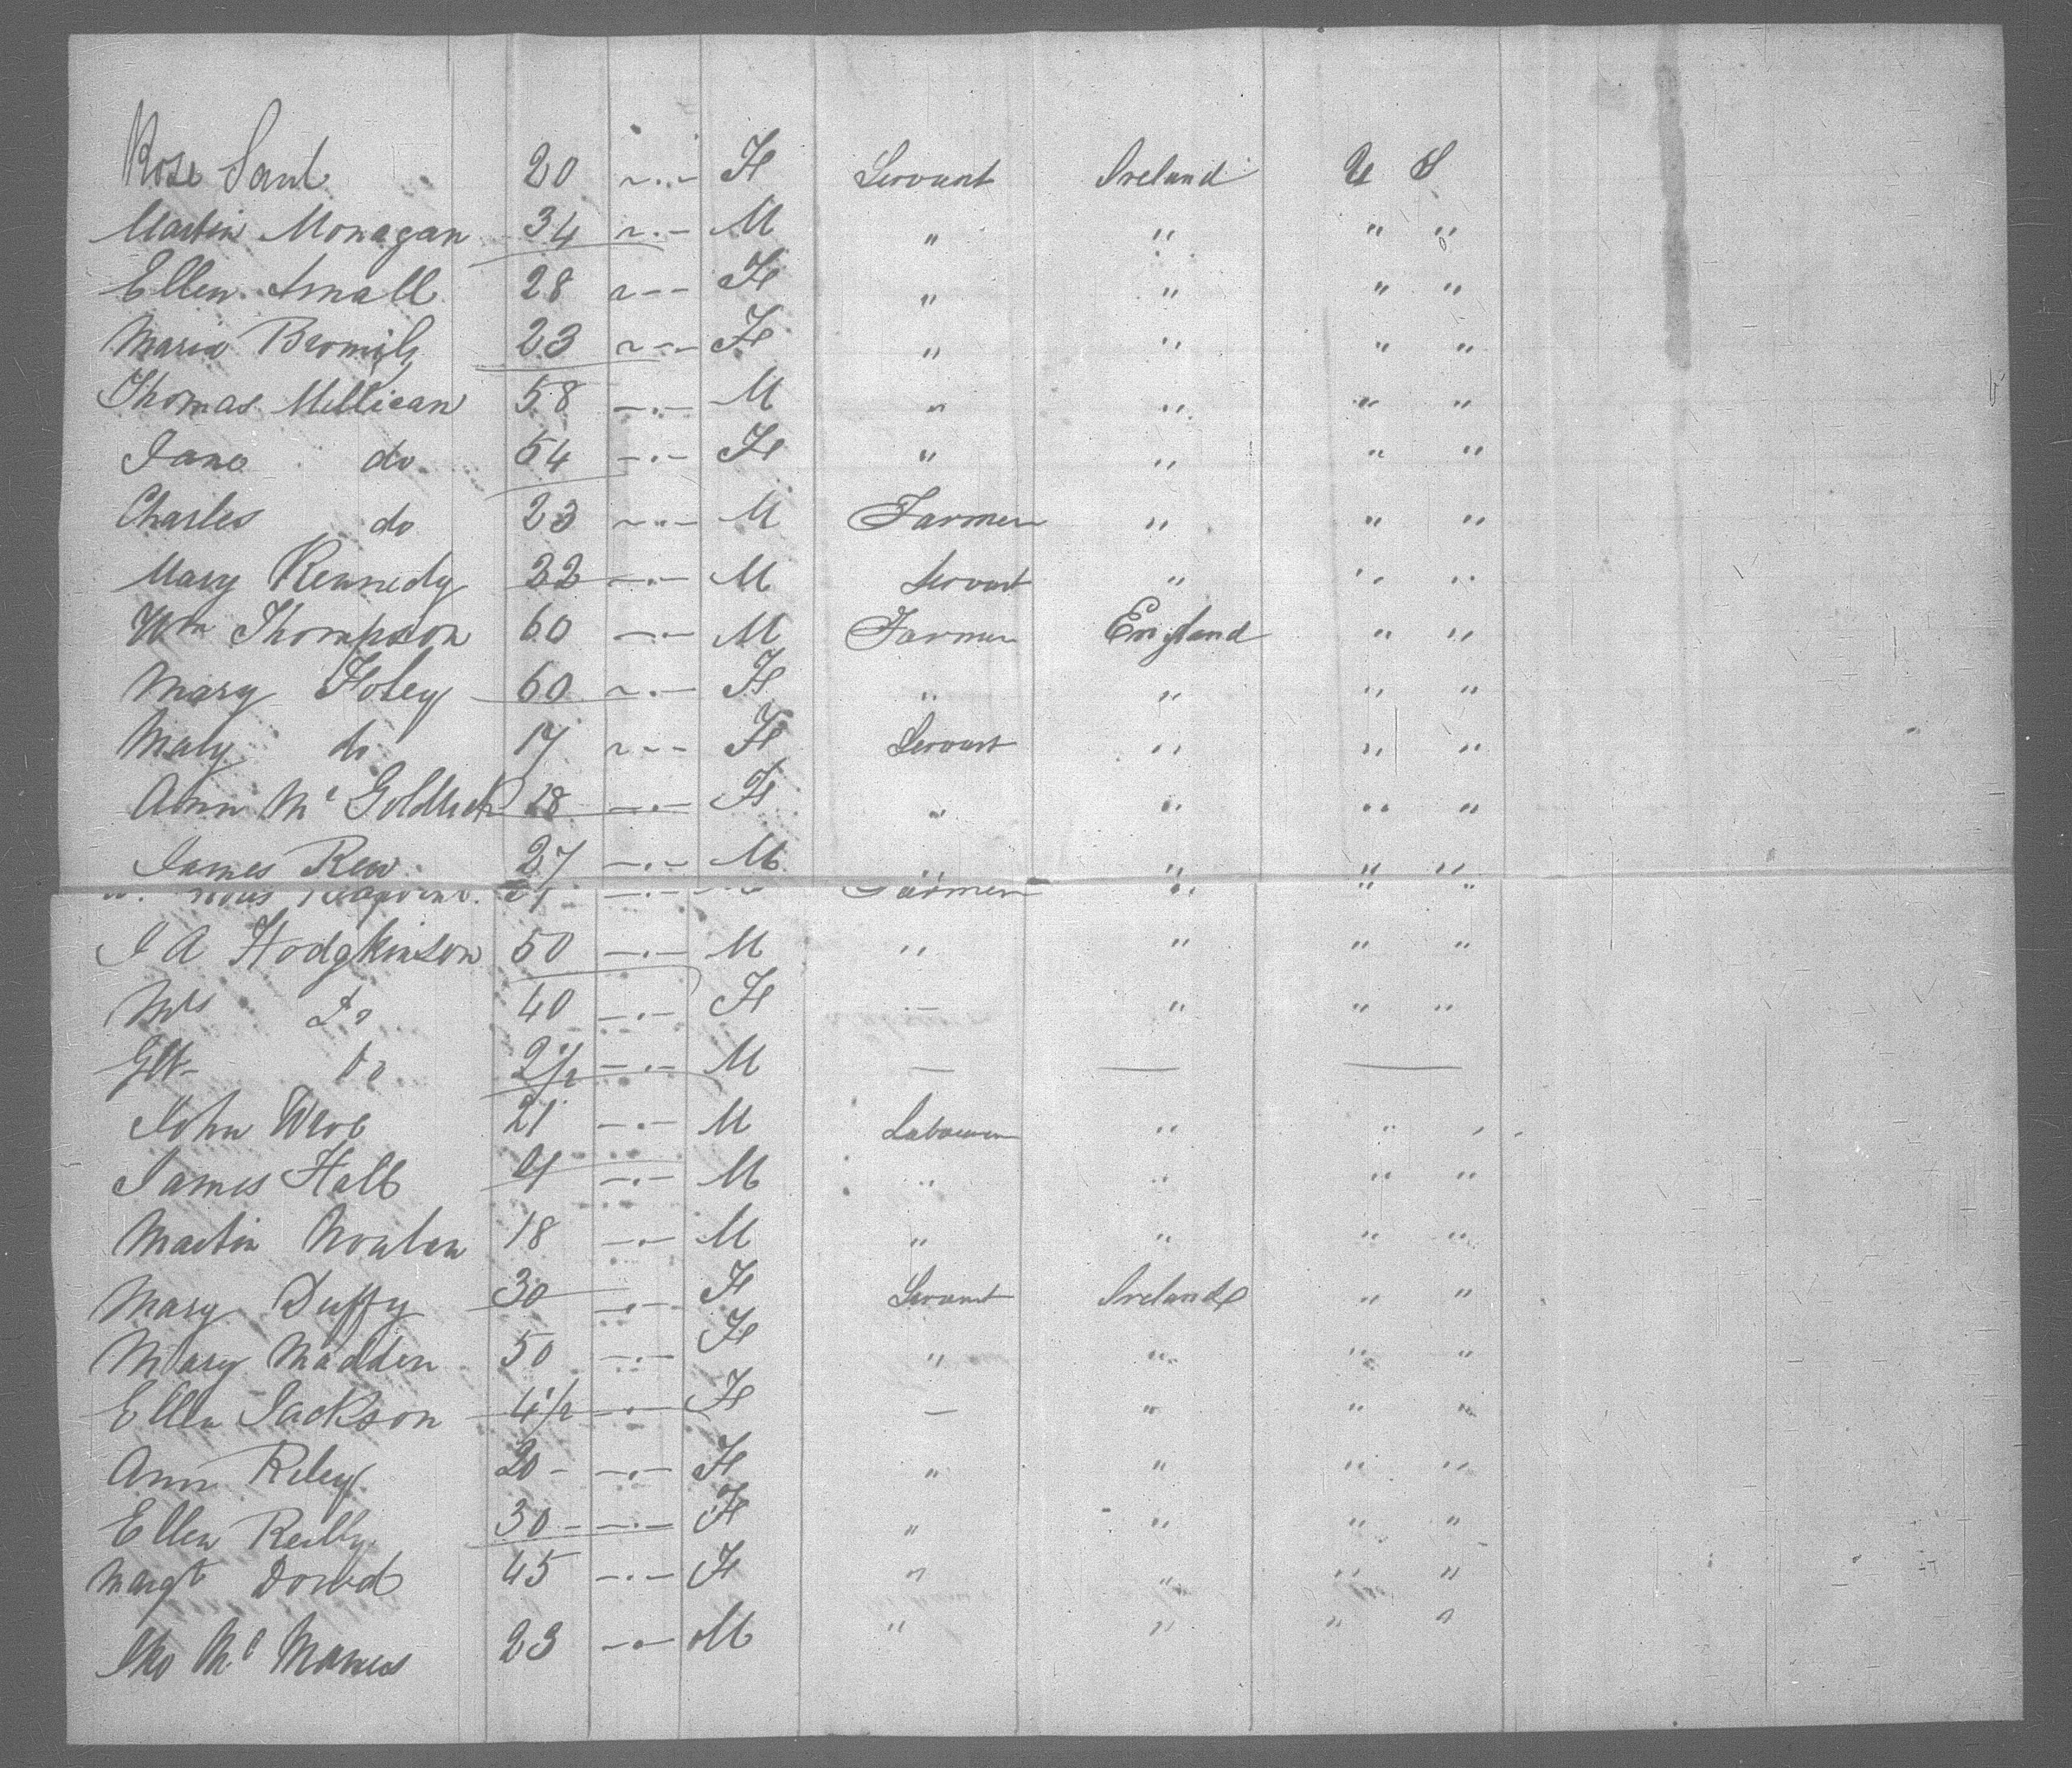 Rose Saul 20 ~.- F Servant Ireland U S
Martin Monagan 34 ~.- M " " " "
Ellen Small 28 ~-- F " " " "
Maria 23 ~-- F " " " "
Thomas Millican 58 -.- M " " " "
Jane do 54 -.- F " " " "
Charles do 23 ~.- M Farmer " " "
Mary Kennedy 22 -.- M Servant " " "
Wm Thompson 60 -.- M Farmer England " "
Mary Foley 60 ~.- F " " " "
Mary do 17 ~-- F Servant " " "
Ann Mc Goldrick 18 -.- F " " " "
James Rew 27 -.- M " " "
Farmer " " "
J A Hodgkinson 50 -.- M " " " "
Mrs Do 40 -.- F - " " "
Do 2 1/2 -.- M - - -
John 21 -.- M Labourer " " "
James Hall -.- M " " " "
Martin Nowlan 18 -.- M " " " "
Mary Duffy 30 -.- F Servant Ireland " "
Mary Madden 50 -.- F " " " "
Ellen Jackson 4 1/2 -.- F - " " "
Ann Reley 20 - -.- F " " " "
Ellen Reilly 30 - -.- F " " " "
Margt Dowd 45 -.- F " " " "
Tho Mc Manus 23 -.- M " " " "